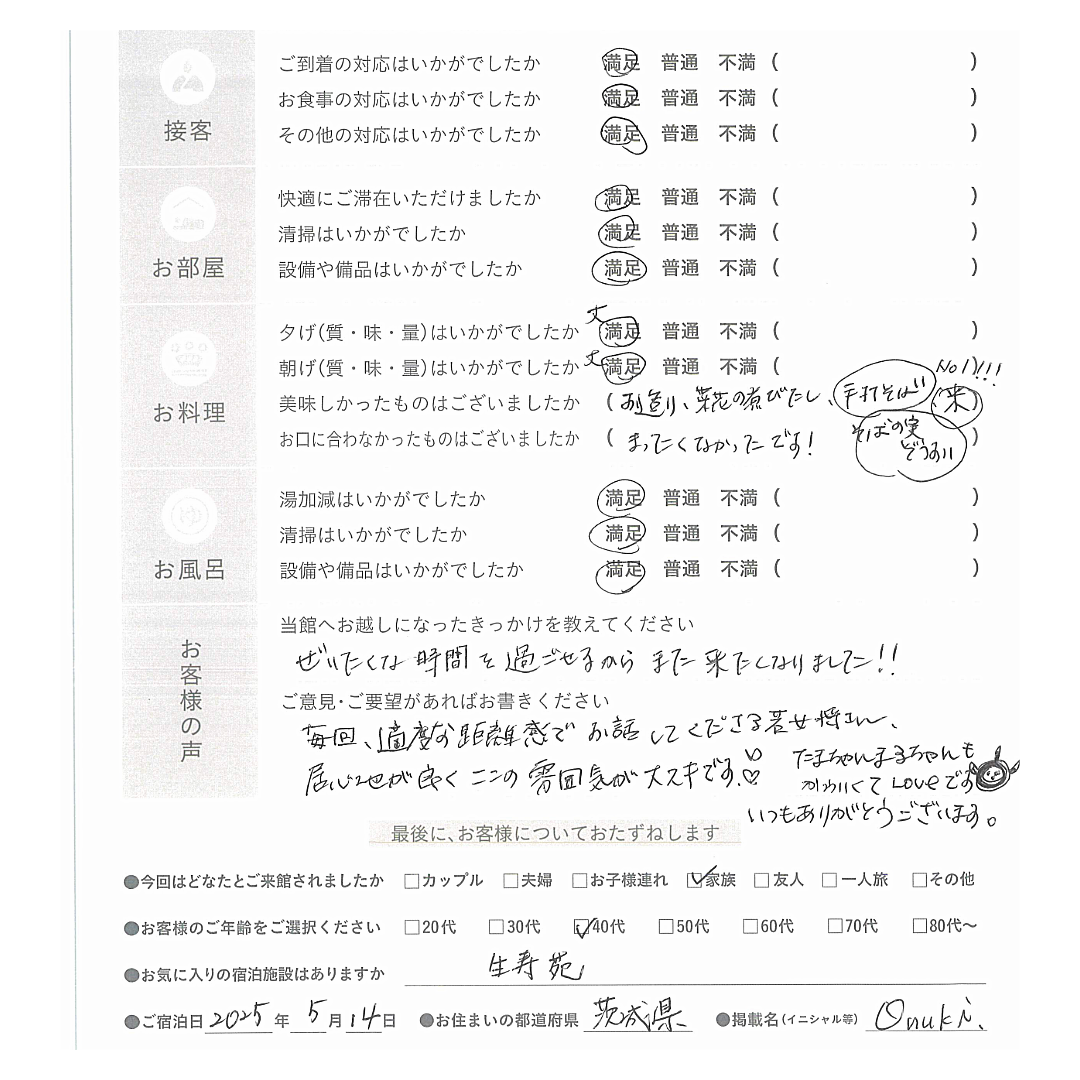 接客
ご到着の対応はいかがでしたか 満足 普通 不満 ( )
お食事の対応はいかがでしたか 満足 普通 不満 ( )
その他の対応はいかがでしたか 満足 普通 不満 ( )
お部屋
快適にご滞在いただけましたか 満足 普通 不満 ( )
清掃はいかがでしたか 満足 普通 不満 ( )
設備や備品はいかがでしたか 満足 普通 不満 ( )
お料理
夕げ(質・味・量)はいかがでしたか 大 満足 普通 不満 ( )
朝げ(質・味・量)はいかがでしたか 大 満足 普通 不満 ( )
No1!!!
美味しかったものはございましたか ( お造り、菜花の煮びたし、手打そば!! 米 )
そばの実
ぞうすい
お口に合わなかったものはございましたか ( まったくなかったです! )
お風呂
湯加減はいかがでしたか 満足 普通 不満 ( )
清掃はいかがでしたか 満足 普通 不満 ( )
設備や備品はいかがでしたか 満足 普通 不満 ( )
お客様の声
当館へお越しになったきっかけを教えてください
ぜいたくな時間を過ごせるから また来たくなりました!!
ご意見・ご要望があればお書きください
毎回、適度な距離感でお話してくださる若女将さん、
居心地が良くここの雰囲気が大スキです。♡♡
たまちゃんまるちゃんも
かわいくてLoveです
いつもありがとうございます。
最後に、お客様についておたずねします
●今回はどなたとご来館されましたか □カップル □夫婦 □お子様連れ ☑家族 □友人 □一人旅 □その他
●お客様のご年齢をご選択ください □20代 □30代 ☑40代 □50代 □60代 □70代 □80代〜
●お気に入りの宿泊施設はありますか 生寿苑
●ご宿泊日 2025年 5月 14日 ●お住まいの都道府県 茨城県 ●掲載名(イニシャル等) Onuki.